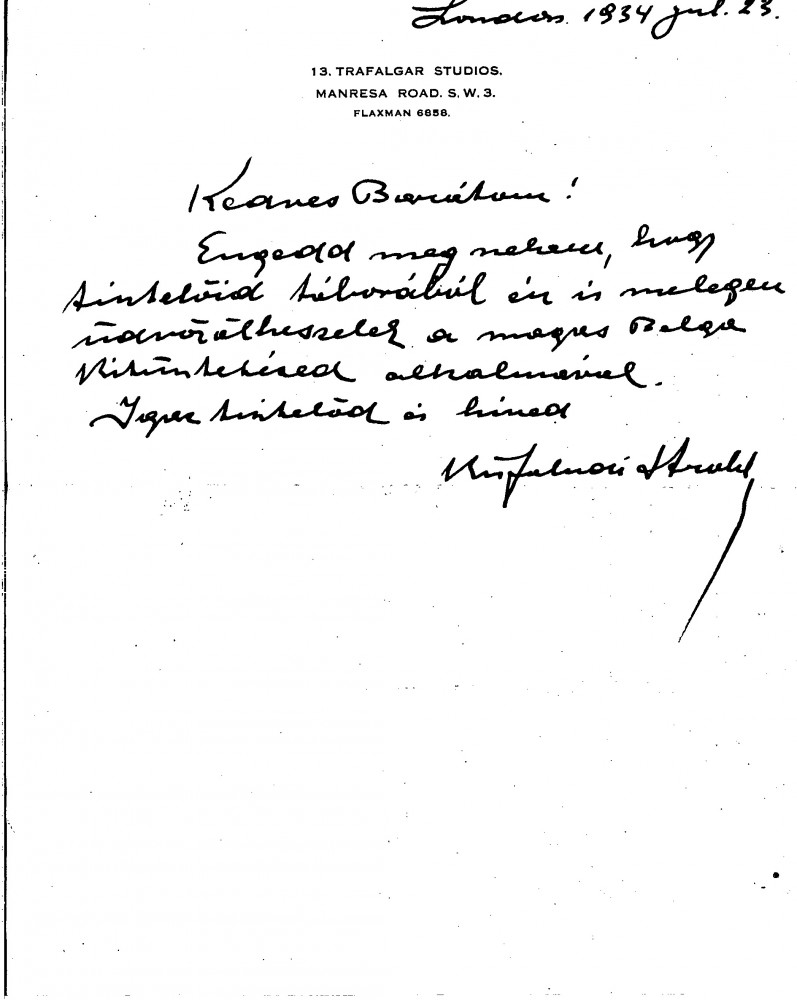 London. 1934 jul. 23.
13. TRAFALGAR STUDIOS.
MANRESA ROAD. S. W. 3.
FLAXMAN 6858.
Kedves Barátom!
Engedd meg nekem, hogy
tisztelőid táborából én is melegen
üdvözölhesselek a magas Belga
kitüntetésed alkalmával.
Igaz tisztelőd és híved
Kisfaludi Strobl